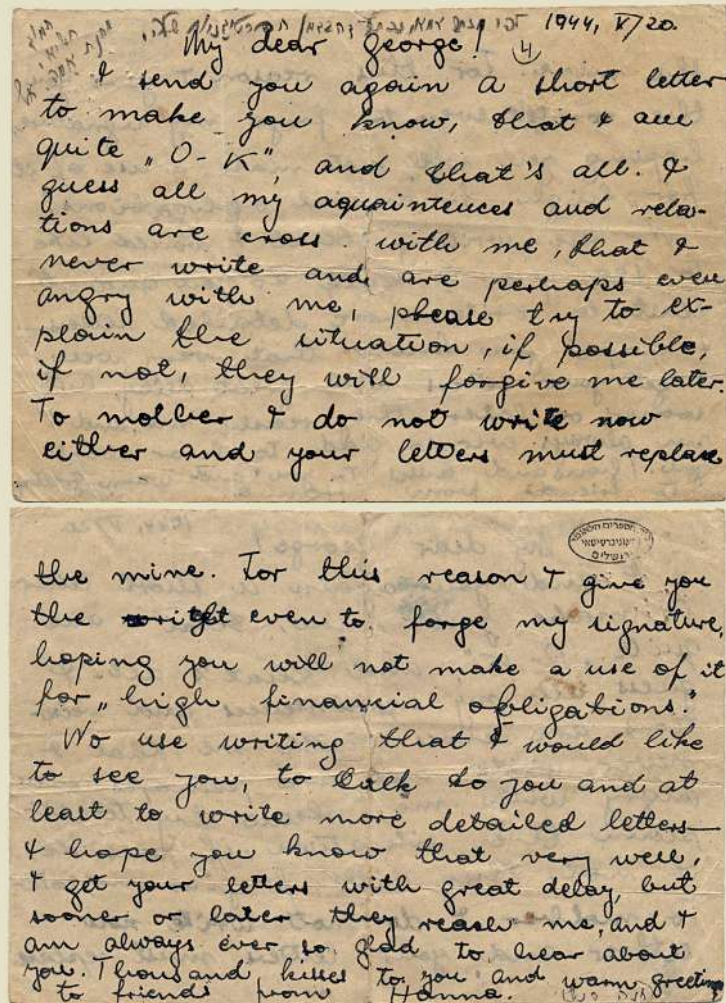 1944, V/20.
My dear George!
4
I send you again a short letter
to make you know, that I am
quite „O-K", and that's all. I
guess all my aquaintences and rela-
tions are cross with me, that I
never write and are perhaps even
angry with me, please try to ex-
plain the situation, if possible,
if not, they will forgive me later.
To mother I do not write now
either and your letters must replase
the mine. For this reason I give you
the right even to forge my signature,
hoping you will not make a use of it
for „high financial obligations."
No use writing that I would like
to see you, to talk to you and at
least to write more detailed letters—
I hope you know that very well,
I get your letters with great delay, but
sooner or later they reach me, and I
am always ever so glad to hear about
you. Thousand kisses to you and warm greeting
to friends from Hanna.